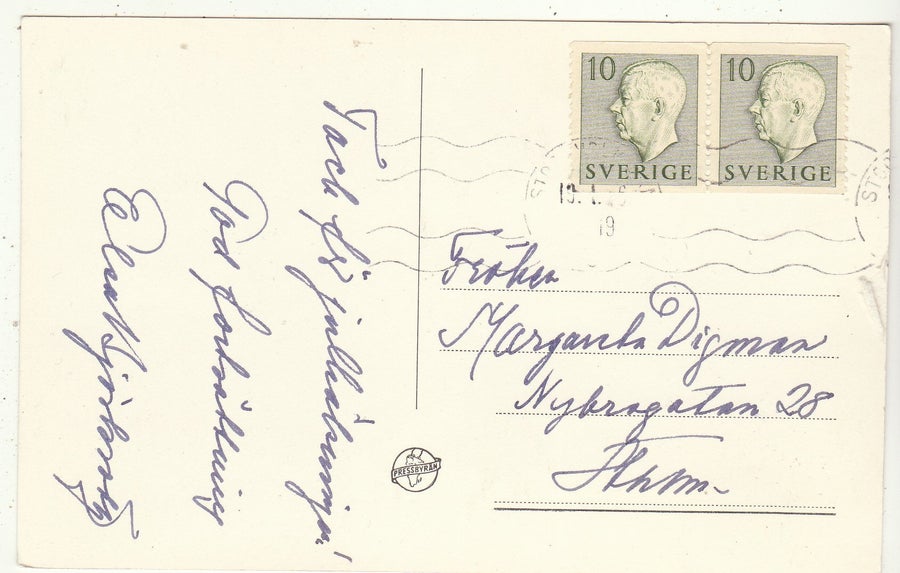 10 10
SVERIGE SVERIGE
STO
19. 1.
19
STO
Tack för julhälsningen!
God fortsättning
Fröken
Margareta Digman
Nybrogatan 28
Sthlm.
PRESSBYRÅN